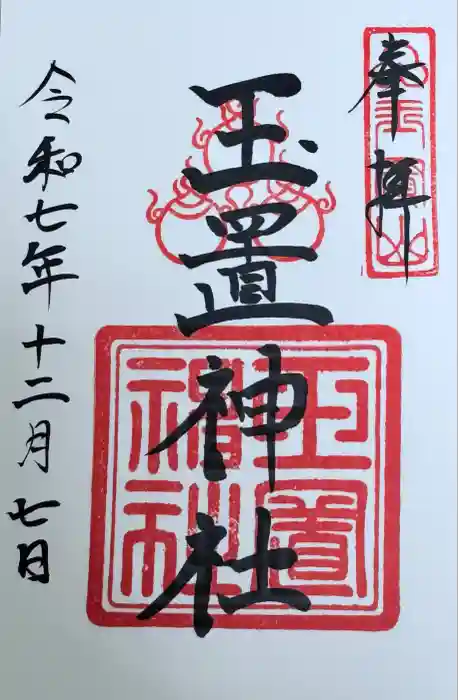 奉拝
玉置神社
令和七年十二月七日
玉置
神社